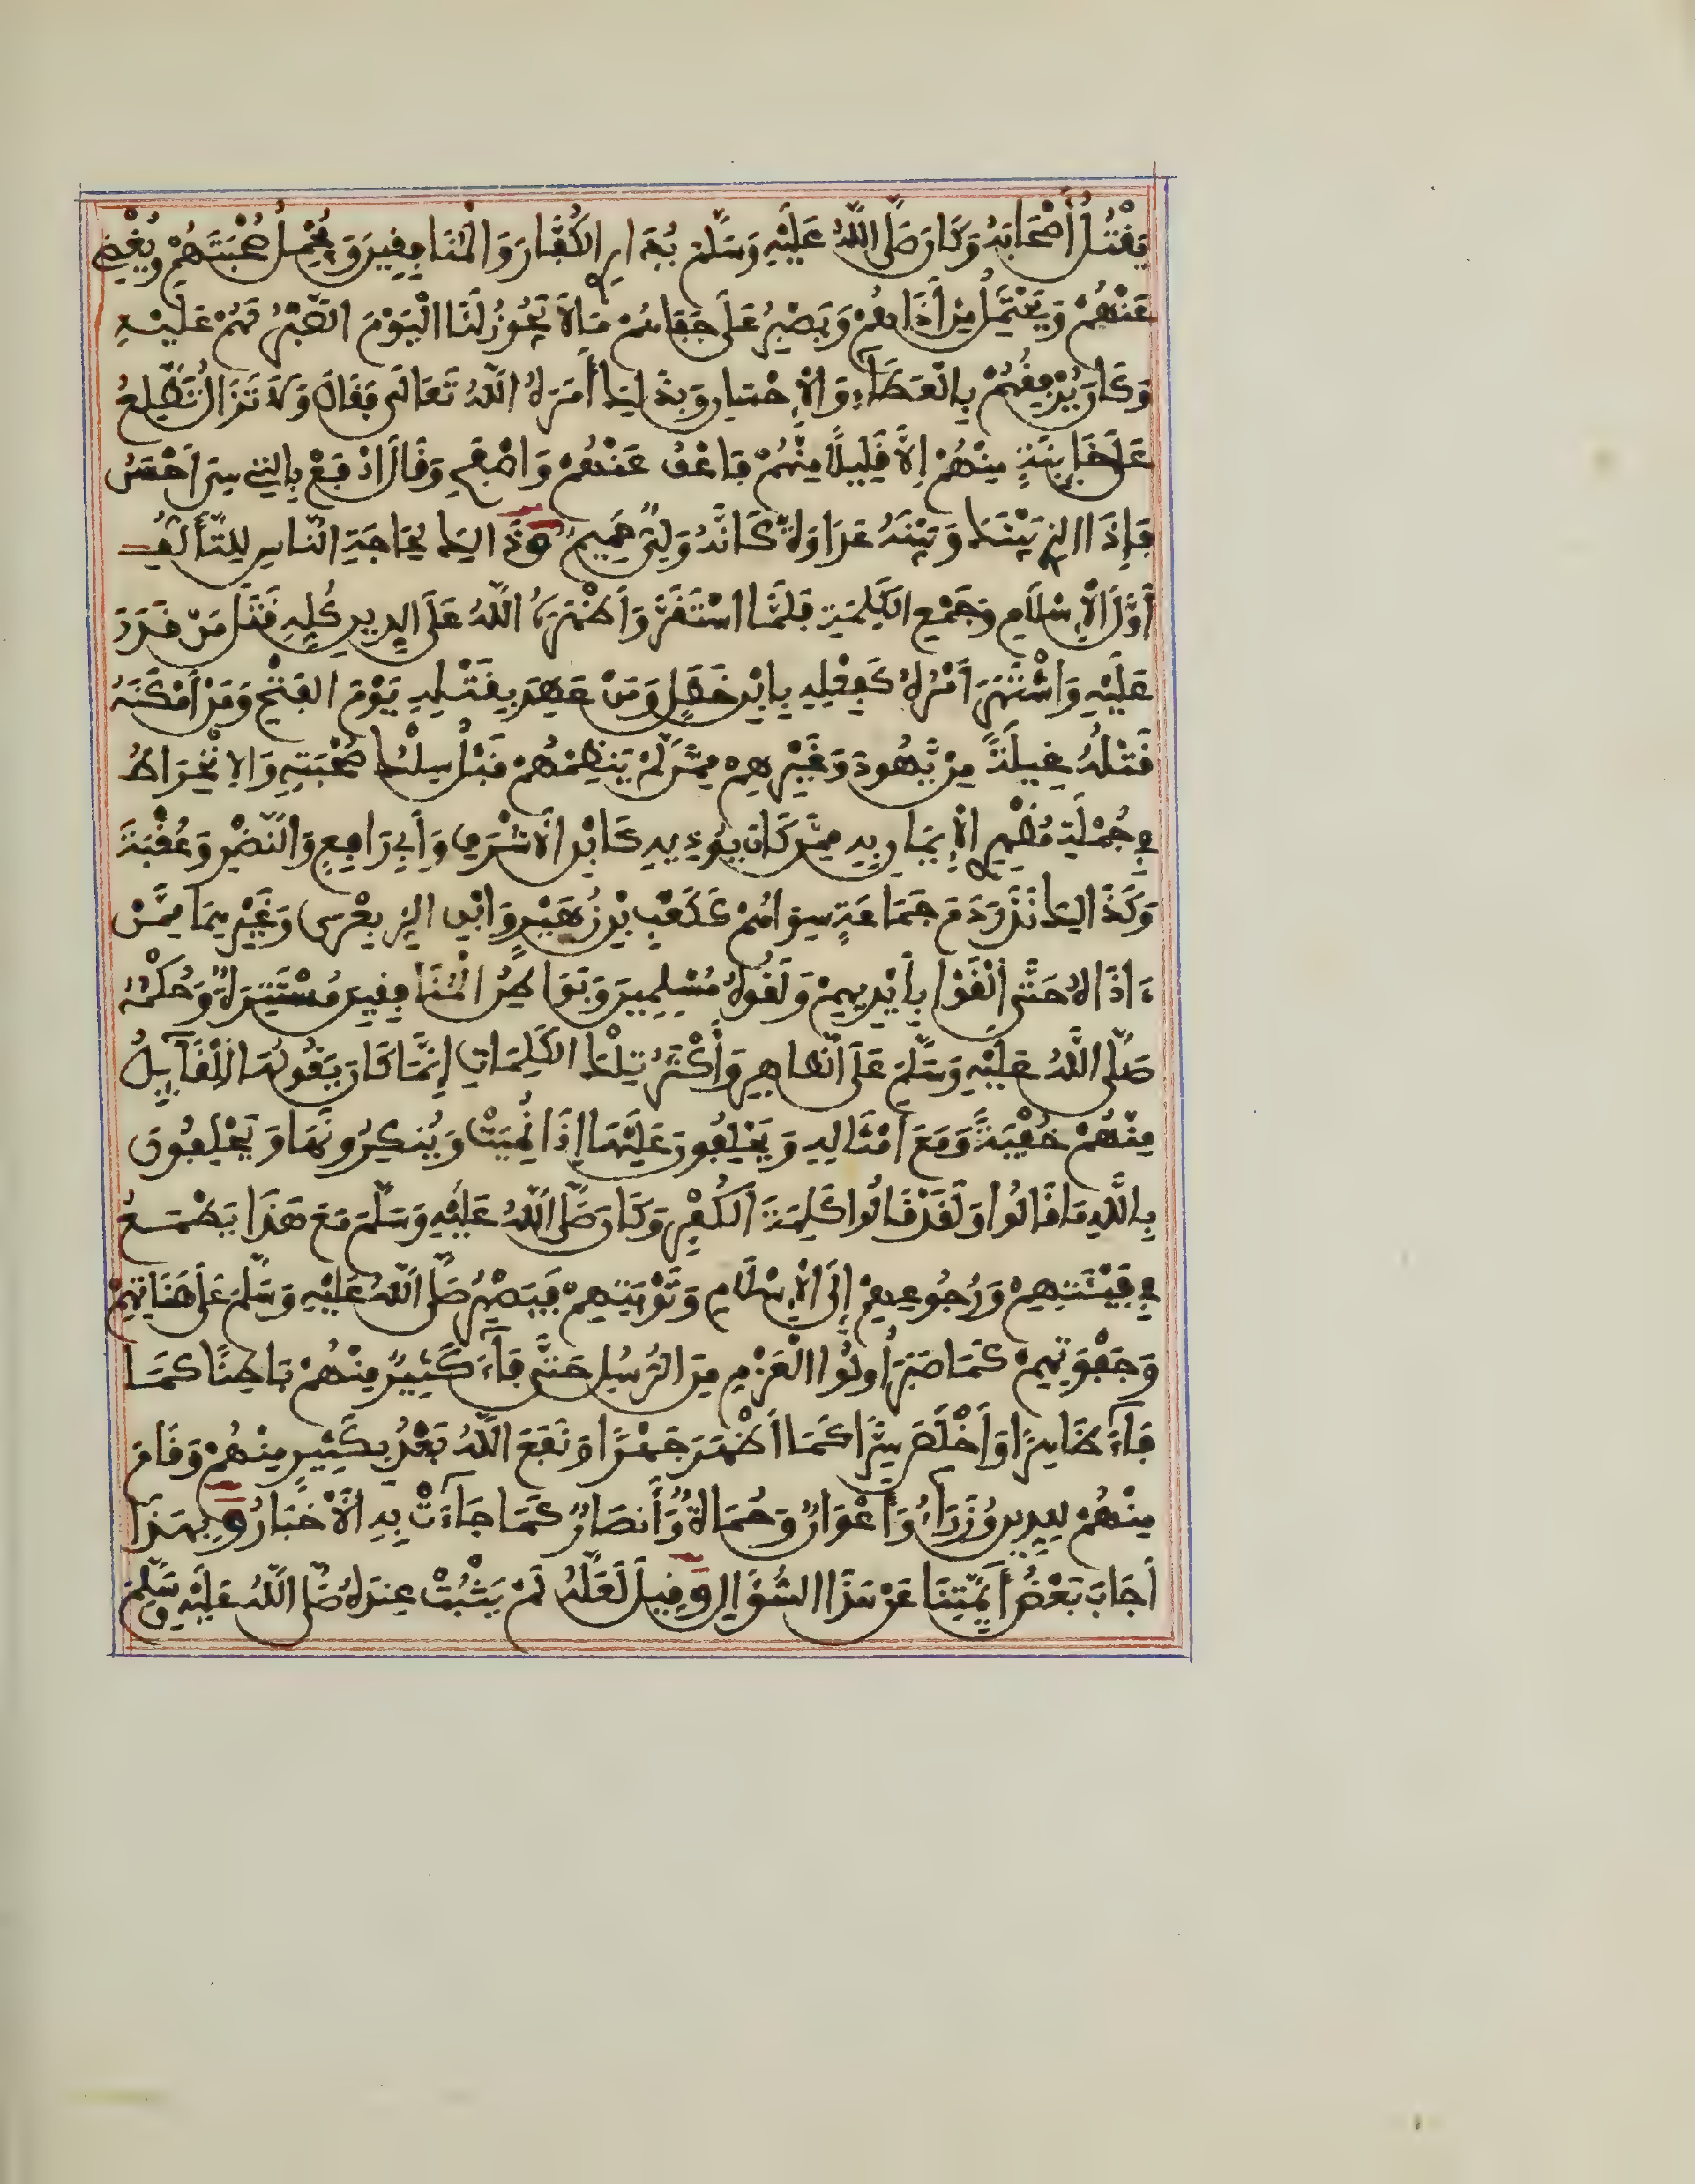 يَقْتُلُ أَصْحَابَهُ وَكَانَ صَلَّى اللَّهُ عَلَيْهِ وَسَلَّمَ يُدَارِي الْكُفَّارَ وَالْمُنَافِقِينَ وَيُجْمِلُ صُحْبَتَهُمْ وَيُغْضِي
عَنْهُمْ وَيَحْتَمِلُ مِنْ أَذَاهُمْ وَيَصْبِرُ عَلَى جَفَائِهِمْ مَا لَا يَجُوزُ لَنَا الْيَوْمَ الصَّبْرُ لَهُمْ عَلَيْهِ
وَكَانَ يُرْفِقُهُمْ بِالْعَطَاءِ وَالْإِحْسَانِ وَبِذَلِكَ أَمَرَهُ اللَّهُ تَعَالَى فَقَالَ وَلَا تَزَالُ تَطَّلِعُ
عَلَى خَائِنَةٍ مِنْهُمْ إِلَّا قَلِيلًا مِنْهُمْ فَاعْفُ عَنْهُمْ وَاصْفَحْ وَقَالَ ادْفَعْ بِالَّتِي هِيَ أَحْسَنُ
فَإِذَا الَّذِي بَيْنَكَ وَبَيْنَهُ عَدَاوَةٌ كَأَنَّهُ وَلِيٌّ حَمِيمٌ وَذَلِكَ لِحَاجَةِ النَّاسِ لِلتَّأَلُّفِ
أَوَّلَ الْإِسْلَامِ وَجَمْعِ الْكَلِمَةِ فَلَمَّا اسْتَقَرَّ وَأَظْهَرَهُ اللَّهُ عَلَى الدِّينِ كُلِّهِ قَتَلَ مَنْ قَدَرَ
عَلَيْهِ وَاشْتَهَرَ أَمْرُهُ كَفِعْلِهِ بِابْنِ خَطَلٍ وَمَنْ عَهِدَ بِقَتْلِهِ يَوْمَ الْفَتْحِ وَمَنْ أَمْكَنَهُ
قَتْلُهُ غِيلَةً مِنْ يَهُودَ وَغَيْرِهِمْ مِمَّنْ لَمْ يَنْظِمْهُمْ قَبْلُ سِلْكُ صُحْبَتِهِ وَالِانْخِرَاطُ
فِي جُمْلَةِ مُظْهِرِي الْإِيمَانِ بِهِ مِمَّنْ كَانَ يُؤْذِيهِ كَابْنِ الْأَشْرَفِ وَأَبِي رَافِعٍ وَالنَّضْرِ وَعُقْبَةَ
وَكَذَلِكَ نَذَرَ دَمَ جَمَاعَةٍ سِوَاهُمْ كَكَعْبِ بْنِ زُهَيْرٍ وَابْنِ الزِّبَعْرَى وَغَيْرِهِمَا مِمَّنْ
ءَاذَاهُ حَتَّى أَلْقَوْا بِأَيْدِيهِمْ وَلَقُوهُ مُسْلِمِينَ وَبَوَاطِنُ الْمُنَافِقِينَ مُسْتَتِرَةٌ وَحُكْمُهُ
صَلَّى اللَّهُ عَلَيْهِ وَسَلَّمَ عَلَى الظَّاهِرِ وَأَكْثَرُ تِلْكَ الْكَلِمَاتِ إِنَّمَا كَانَ يَقُولُهَا الْقَائِلُ
مِنْهُمْ خُفْيَةً وَمَعَ أَمْثَالِهِ وَيَحْلِفُونَ عَلَيْهَا إِذَا نُمِيَتْ وَيُنْكِرُونَهَا وَيَحْلِفُونَ
بِاللَّهِ مَا قَالُوا وَلَقَدْ قَالُوا كَلِمَةَ الْكُفْرِ وَكَانَ صَلَّى اللَّهُ عَلَيْهِ وَسَلَّمَ مَعَ هَذَا يَطْمَعُ
فِي فَيْئَتِهِمْ وَرُجُوعِهِمْ إِلَى الْإِسْلَامِ وَتَوْبَتِهِمْ فَيَصْبِرُ صَلَّى اللَّهُ عَلَيْهِ وَسَلَّمَ عَلَى هَنَاتِهِمْ
وَجَفْوَتِهِمْ كَمَا صَبَرَ أُولُوا الْعَزْمِ مِنَ الرُّسُلِ حَتَّى فَاءَ كَثِيرٌ مِنْهُمْ بَاطِنًا كَمَا
فَاءَ ظَاهِرًا وَأَخْلَصَ سِرًّا كَمَا أَظْهَرَ جَهْرًا وَنَفَعَ اللَّهُ بَعْدُ بِكَثِيرٍ مِنْهُمْ وَقَامَ
مِنْهُمْ لِلدِّينِ وُزَرَاءُ وَأَعْوَانٌ وَحُمَاةٌ وَأَنْصَارٌ كَمَا جَاءَتْ بِهِ الْأَخْبَارُ وَبِهَذَا
أَجَابَ بَعْضُ أَئِمَّتِنَا عَنْ هَذَا السُّؤَالِ وَقِيلَ لَعَلَّهُ لَمْ يَثْبُتْ عِنْدَهُ صَلَّى اللَّهُ عَلَيْهِ وَسَلَّمَ